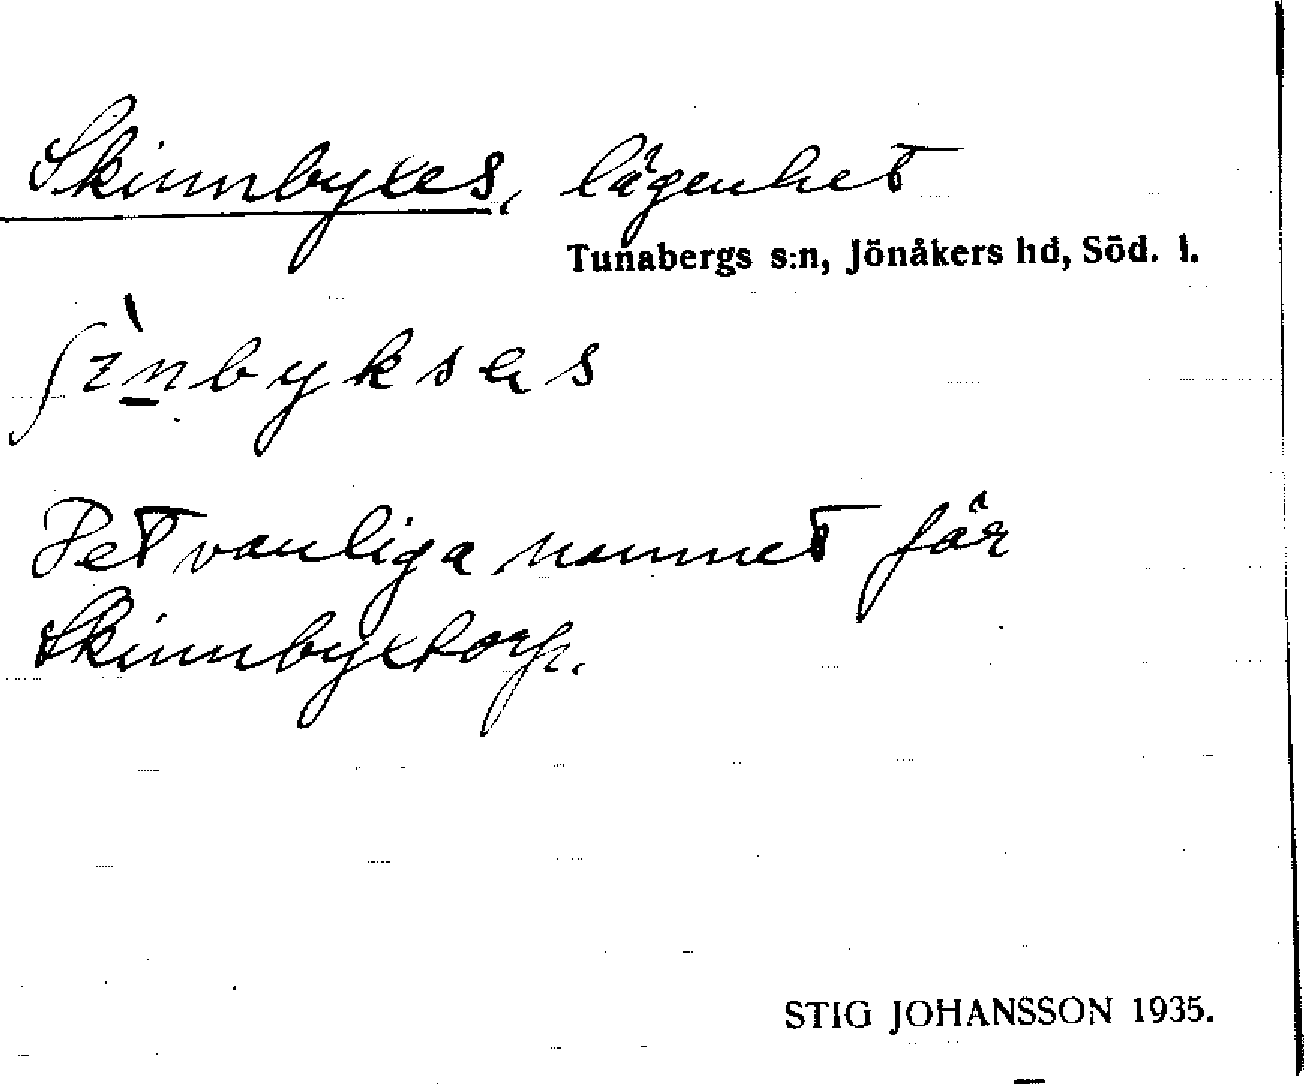 Skinnbyxes, lägenhet
Tunabergs s:n, Jönåkers hd, Söd. l.
ʃìn̲byksəs
Det vanliga namnet för
Skinnbyxtorp.
STIG JOHANSSON 1935.